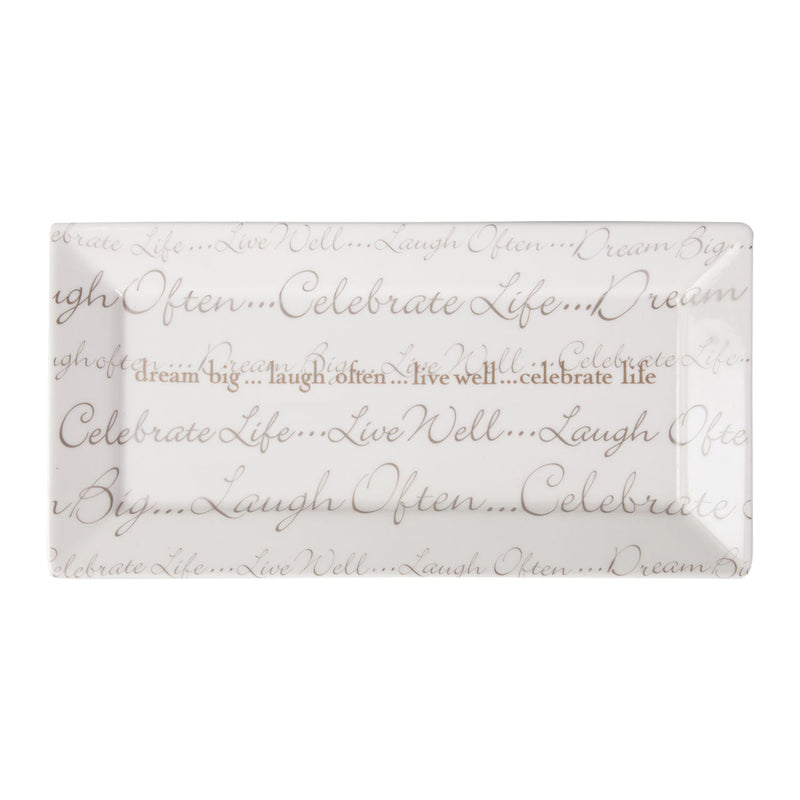 elebrate Life...Live Well...Laugh Often...Dream Big...
ugh Often...Celebrate Life...Dream
ugh often...Dream Big...Live Well...Celebrate Life
dream big...laugh often...live well...celebrate life
Celebrate Life...Live Well...Laugh Ofte
Big...Laugh Often...Celebrate
elebrate Life...Live Well...Laugh Often...Dream Bi